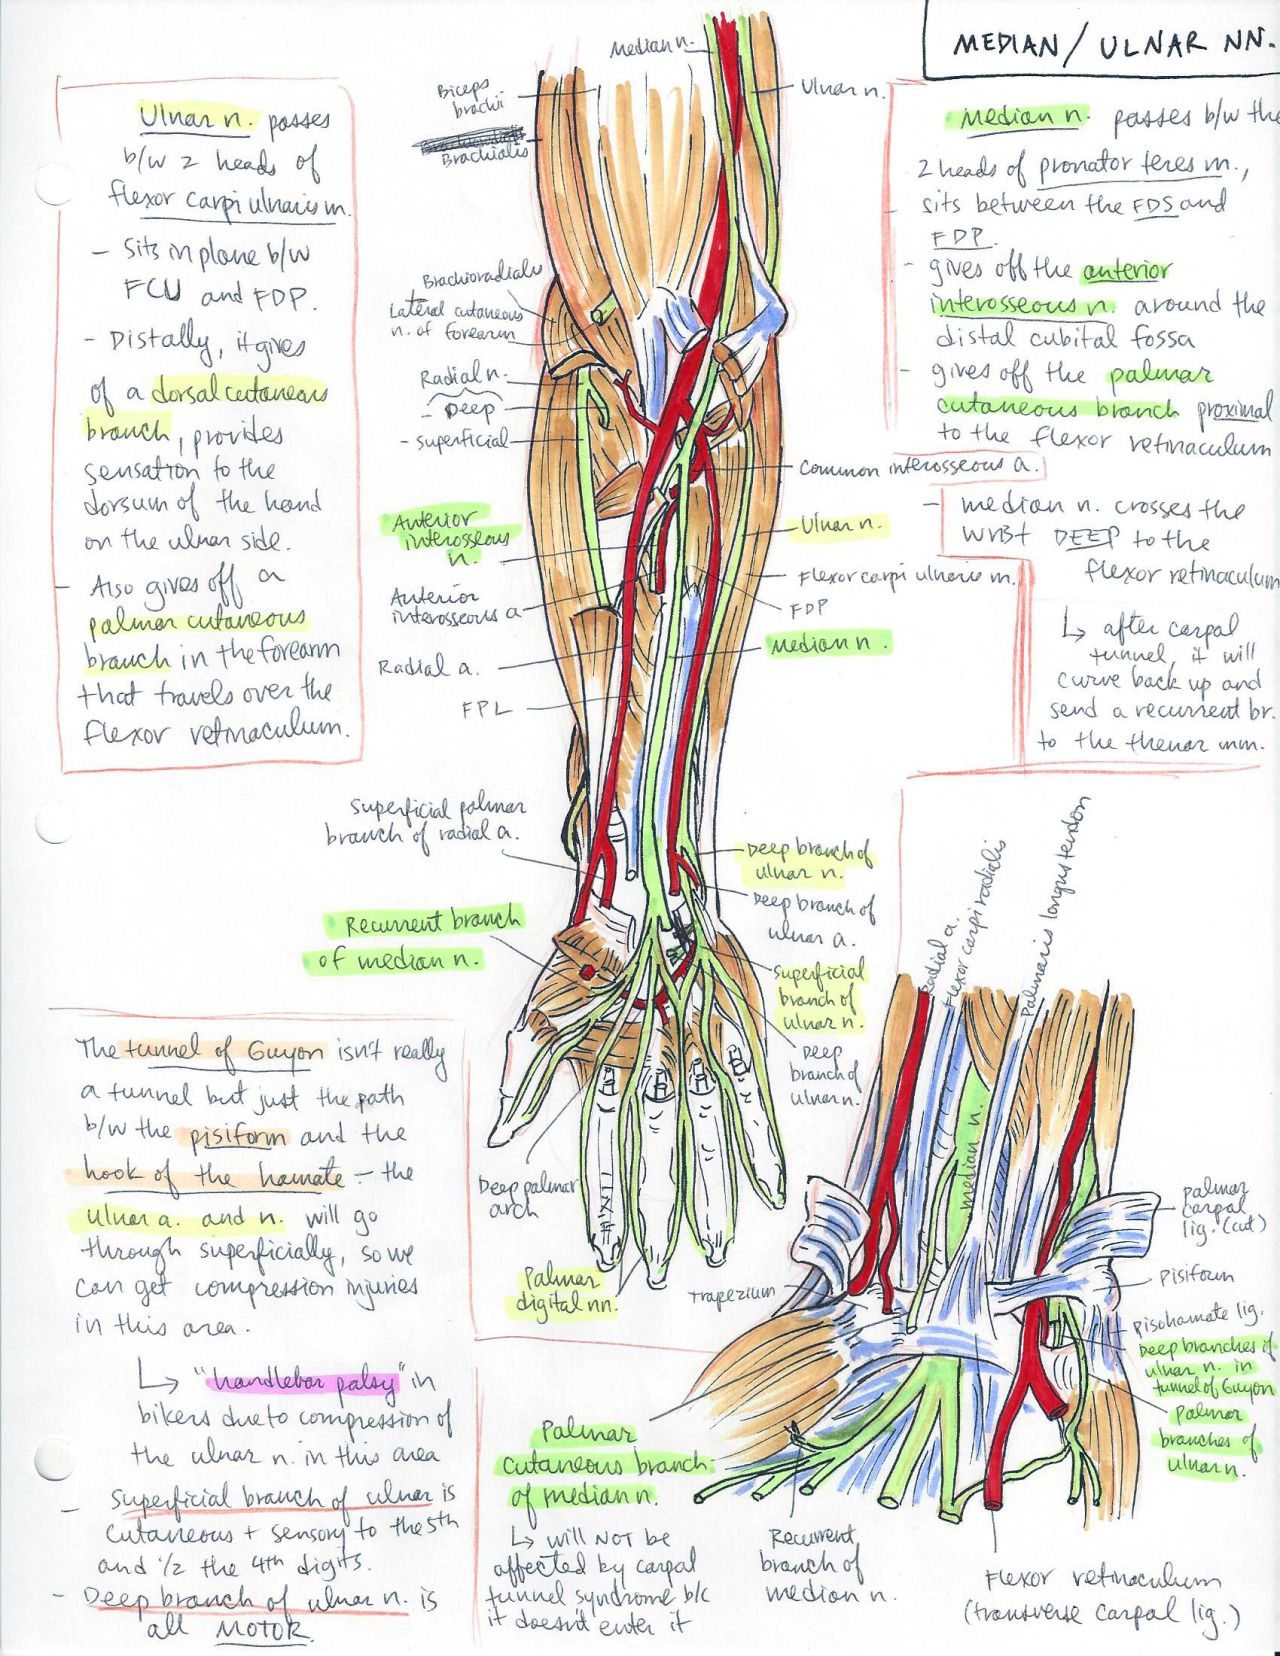 MEDIAN / ULNAR NN.
Ulnar n. passes
b/w 2 heads of
flexor carpi ulnaris m.
- Sits in plane b/w
FCU and FDP.
- Distally, it gives
of a dorsal cutaneous
branch, provides
sensation to the
dorsum of the hand
on the ulnar side.
- Also gives off a
palmar cutaneous
branch in the forearm
that travels over the
flexor retinaculum.
Median n.
Biceps
brachii
Brachialis
Brachioradialis
Lateral cutaneous
n. of forearm
Radial n.
- Deep
- superficial
Anterior
interosseous
n.
Anterior
interosseous a
Radial a.
FPL
Superficial palmar
branch of radial a.
Recurrent branch
of median n.
Ulnar n.
Common interosseous a.
Ulnar n.
Flexor carpi ulnaris m.
FDP
Median n.
Deep branch of
ulnar n.
Deep branch of
ulnar a.
Superficial
branch of
ulnar n.
Deep
branch of
ulnar n.
Deep palmar
arch
Palmar
digital nn.
Median n. passes b/w the
2 heads of pronator teres m.,
- sits between the FDS and
FDP.
- gives off the anterior
interosseous n. around the
distal cubital fossa
- gives off the palmar
cutaneous branch proximal
to the flexor retinaculum
- median n. crosses the
wrist DEEP to the
flexor retinaculum
↳ after carpal
tunnel, it will
curve back up and
send a recurrent br.
to the thenar mm.
The tunnel of Guyon isn't really
a tunnel but just the path
b/w the pisiform and the
hook of the hamate - the
ulnar a. and n. will go
through superficially, so we
can get compression injuries
in this area.
↳ "handlebar palsy" in
bikers due to compression of
the ulnar n. in this area
- Superficial branch of ulnar is
cutaneous + sensory to the 5th
and 1/2 the 4th digits.
- Deep branch of ulnar n. is
all MOTOR.
Radial a.
Flexor carpi radialis
Palmaris longus tendon
median n.
Palmar
carpal
lig. (cut)
Pisiform
Pisohamate lig.
Deep branches of
ulnar n. in
tunnel of Guyon
Palmar
branches of
ulnar n.
Trapezium
Palmar
cutaneous branch
of median n.
↳ will NOT be
affected by carpal
tunnel syndrome b/c
it doesn't enter it
Recurrent
branch of
median n.
Flexor retinaculum
(transverse carpal lig.)